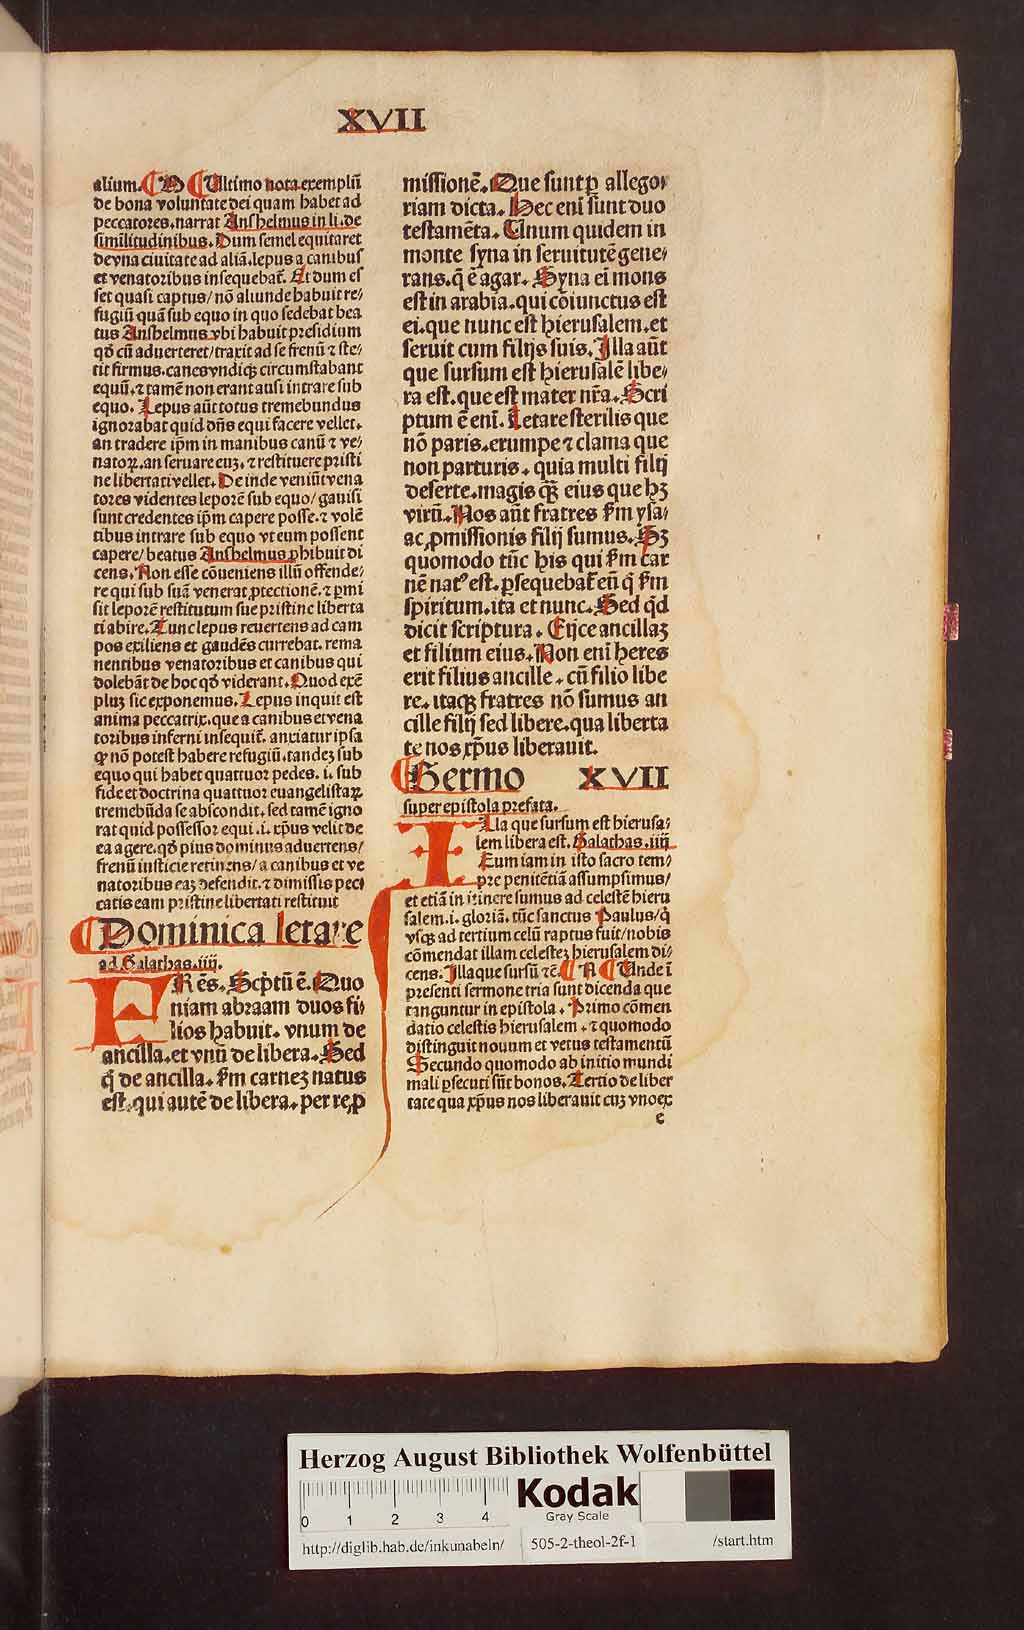 XVII
alium. M Ultimo nota exemplū
de bona voluntate dei quam habet ad
peccatores. narrat Anshelmus in li. de
similitudinibus. Dum semel equitaret
de vna ciuitate ad aliā. lepus a canibus
et venatoribus insequebat̄. Et dum es
set quasi captus/ nō aliunde habuit re⸗
fugiū quā sub equo in quo sedebat bea
tus Anshelmus vbi habuit presidium
qd̄ cū aduerteret/ traxit ad se frenū ⁊ ste⸗
tit firmus. canes vndiqꝫ circumstabant
equū. ⁊ tamē non erant ausi intrare sub
equo. Lepus aūt totus tremebundus
ignorabat quid dn̄s equi facere vellet.
an tradere ip̄m in manibus canū ⁊ ve⸗
natoꝝ. an seruare euꝫ. ⁊ restituere pristi
ne libertati vellet. De inde veniūt vena
tores videntes leporē sub equo/ gauisi
sunt credentes ip̄m capere posse. ⁊ volē
tibus intrare sub equo vt eum possent
capere/ beatus Anshelmus ꝓhibuit di
cens. Non esse cōueniens illū offende⸗
re qui sub suā venerat ꝓtectionē. ⁊ ꝑmi
sit leporē restitutum sue pristine liberta
ti abire. Tunc lepus reuertens ad cam
pos exiliens et gaudēs currebat. rema
nentibus venatoribus et canibus qui
dolebāt de hoc qd̄ viderant. Quod exē
pluꝫ sic exponemus. Lepus inquit est
anima peccatrix. que a canibus et vena
toribus inferni insequit̄. anxiatur ipsa
qꝛ nō potest habere refugiū. tandeꝫ sub
equo qui habet quattuor pedes. i. sub
fide et doctrina quattuor euangelistaꝝ
tremebūda se abscondit. sed tamē igno
rat quid possessor equi .i. xp̄us velit de
ea agere. qd̄ pius dominus aduertens/
frenū iusticie retinens/ a canibus et ve
natoribus eaꝫ defendit. ⁊ dimissis pec⸗
catis eam pristine libertati restituit
Dominica letare
ad Galathas. iiij.
FRēs. Scp̄tū ē. Quo
niam abraam duos fi⸗
lios habuit. vnum de
ancilla. et vnū de libera. Sed
q̄ de ancilla. ẜm carneꝫ natus
est. qui autē de libera. per re ꝓ
missionē. Que sunt ꝑ allego⸗
riam dicta. Hec enī sunt duo
testamēta. Unum quidem in
monte syna in seruitutē gene⸗
rans. q̄ ē agar. Syna ei mons
est in arabia. qui cōiunctus est
ei. que nunc est hierusalem. et
seruit cum filijs suis. Illa aūt
que sursum est hierusalē libe⸗
ra est. que est mater nr̄a. Scri
ptum ē enī. Letare sterilis que
nō paris. erumpe ⁊ clama que
non parturis. quia multi filij
deserte. magis qꝫ̄ eius que hꝫ
virū. Nos aūt fratres ẜm ysa⸗
ac ꝓmissionis filij sumus. Sꝫ
quomodo tūc his qui ẜm car
nē natꝰ est. ꝑsequebat̄ eū q̄ ẜm
spiritum. ita et nunc. Sed qd̄
dicit scriptura. Eijce ancillaꝫ
et filium eius. Non enī heres
erit filius ancille. cū filio libe
re. itaqꝫ fratres nō sumus an
cille filij sed libere. qua liberta
te nos xp̄us liberauit.
Sermo XVII
super epistola prefata.
Illa que sursum est hierusa⸗
lem libera est. Galathas. iiij
Cum iam in isto sacro tem⸗
pre penitētiā assumpsimus/
et etiā in itinere sumus ad celestē hieru
salem. i. gloriā. tūc sanctus Paulus/ q̄
vsqꝫ ad tertium celū raptus fuit/ nobis
cōmendat illam celesteꝫ hierusalem di⸗
cens. Illa que sursū ⁊c̄. A Unde ī
presenti sermone tria sunt dicenda que
tanguntur in epistola. Primo cōmen
datio celestis hierusalem. ⁊ quomodo
distinguit nouum et vetus testamentū
Secundo quomodo ab initio mundi
mali ꝑsecuti sūt bonos. Tertio de liber
tate qua xp̄us nos liberauit cuꝫ vno ex
c
Herzog August Bibliothek Wolfenbüttel
0 1 2 3 4
Kodak
Gray Scale
http://diglib.hab.de/inkunabeln/ 505-2-theol-2f-1 /start.htm